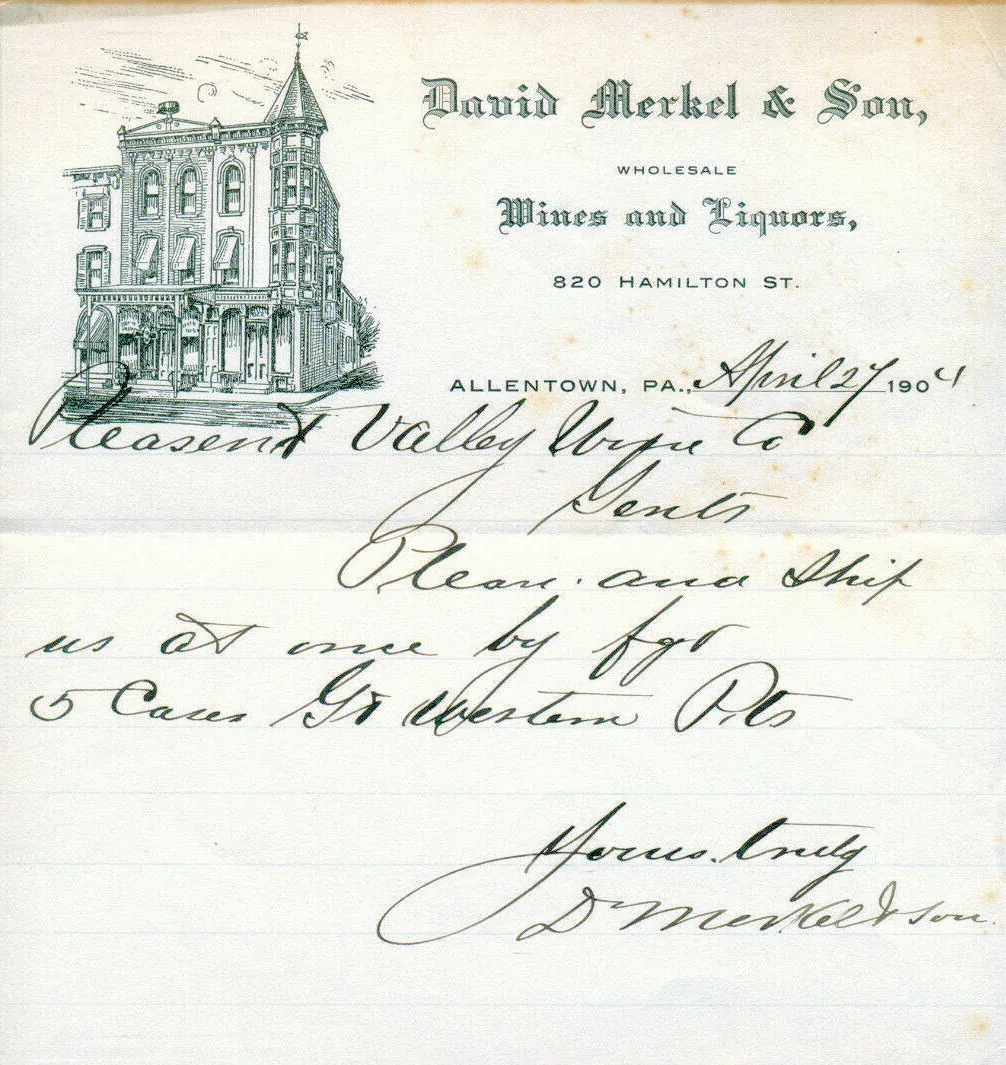 David Merkel & Son,
WHOLESALE
Wines and Liquors,
820 HAMILTON ST.
ALLENTOWN, PA., April 27 1904
Pleasent Valley Wine Co
Gents
Please and Ship
us at once by fgt
5 Cases Gt Western Pts
Yours truly
D Merkel & Son.